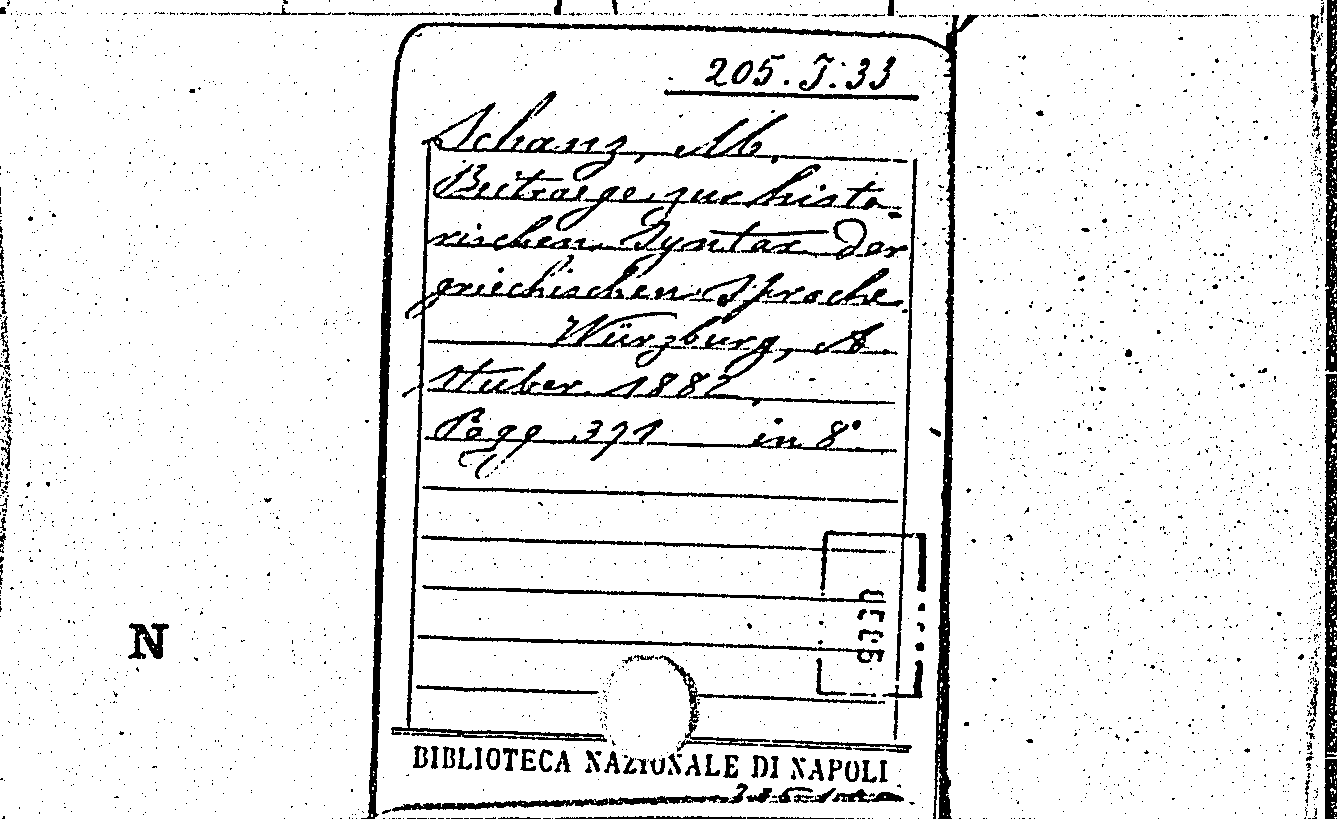 205. J. 33
Schanz, M.
Beitraege zur histo-
rischen Syntax der
griechischen Sprache.
Würzburg, A
Stuber 1882.
Pagg 371 in 8°
N
BIBLIOTECA NAZIONALE DI NAPOLI